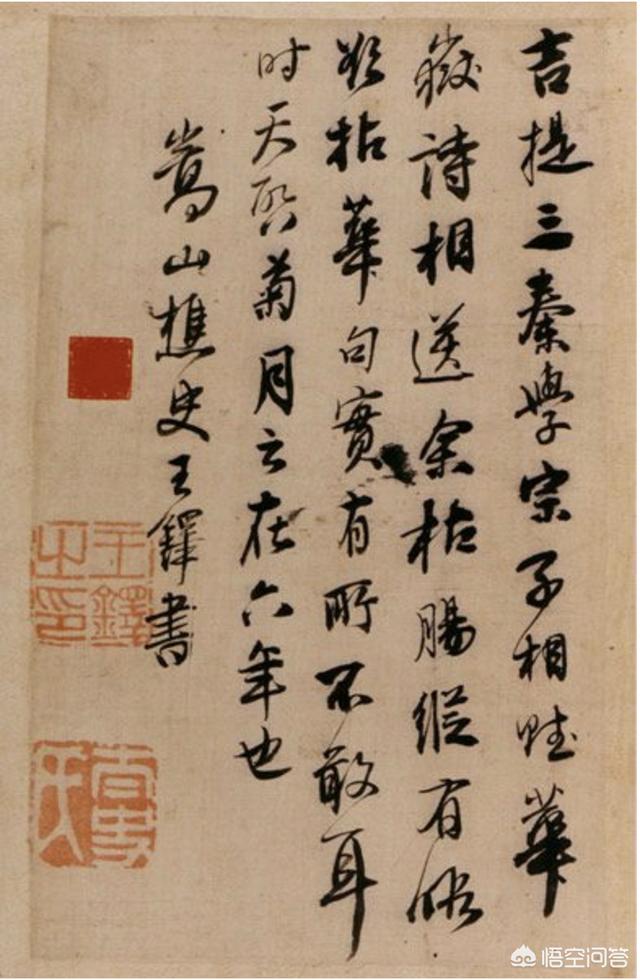 吉提三秦學宗子相賦華
嶽詩相送余枯腸縱有
拈華句實有所不敢耳
时天啓菊月之在六年也
嵩山樵史王鐸書
王鐸之印
悟空问答